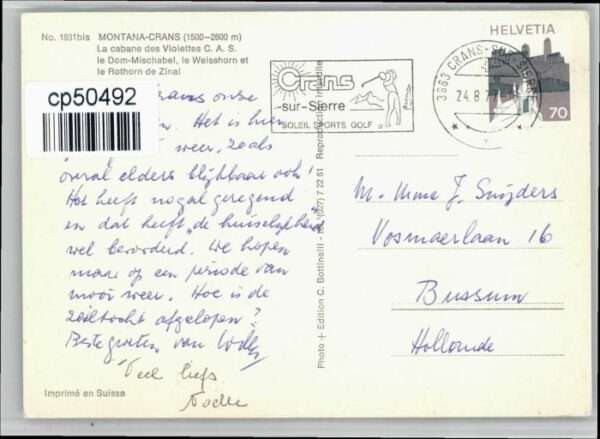 No. 1931bis MONTANA-CRANS (1500-2600 m)
La cabane des Violettes C. A. S.
le Dom-Mischabel, le Weisshorn et
le Rothorn de Zinal
cp50492
Crans onze
Het is hier
weer, zoals
overal elders blijkbaar ook!
Het heeft nogal geregend
en dat heeft „de huiselijkheid"
wel bevorderd. We hopen
maar op een periode van
mooi weer. Hoe is de
zeiltocht afgelopen?
Beste groeten van
Veel liefs
Imprimé en Suisse
Photo + Edition C. Bottinelli - tél. (027) 7 22 51 Reproduction interdite
Crans
-sur-Sierre
SOLEIL SPORTS GOLF
3963 CRANS-SUR-SIERRE
24.8.7
HELVETIA
70
M. Mme J. Snijders
Vosmaerlaan 16
Bussum
Hollande